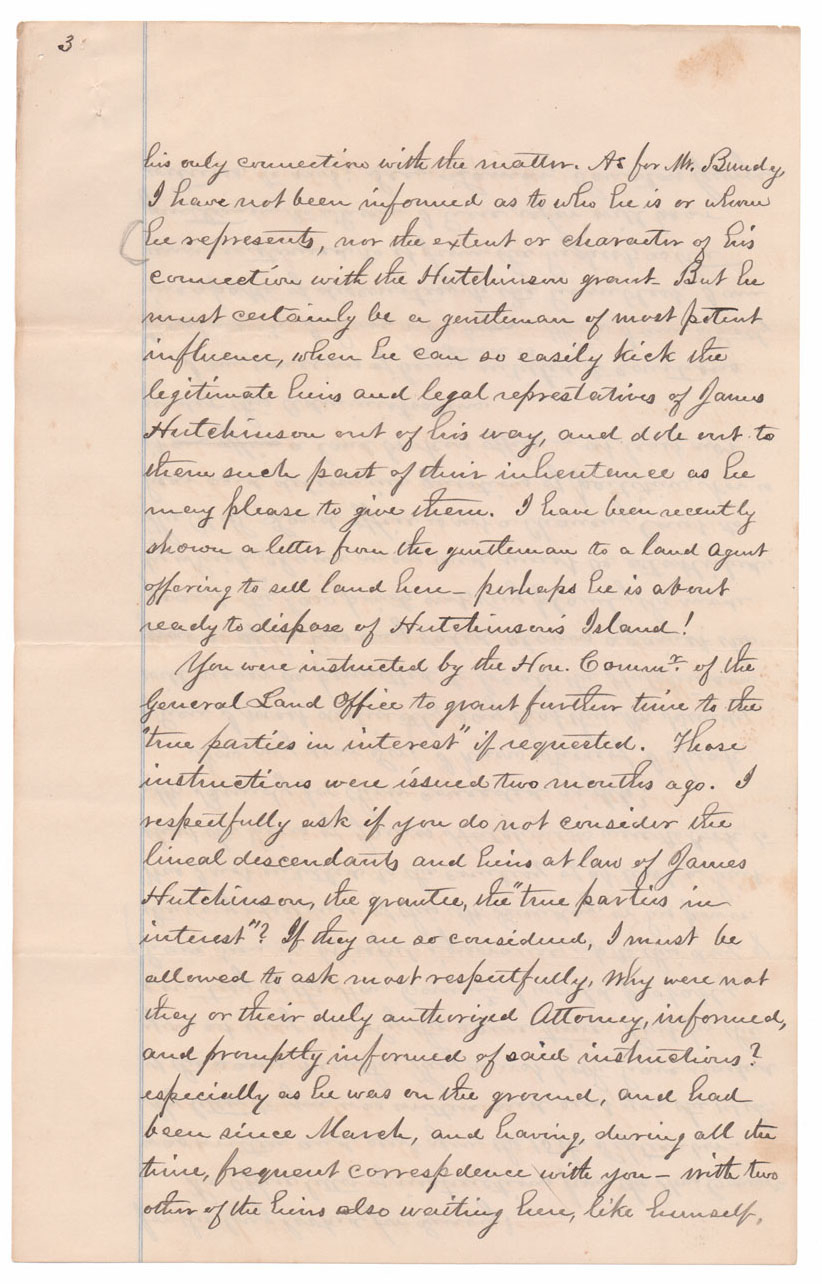 3
his only connection with the matter. As for Mr. Bundy,
I have not been informed as to who he is or whom
he represents, nor the extent or character of his
connection with the Hutchinson grant. But he
must certainly be a gentleman of most potent
influence, when he can so easily kick the
legitimate heirs and legal represtatives of James
Hutchinson out of his way, and dole out to
them such part of their inheritance as he
may please to give them. I have been recently
shown a letter from the gentleman to a land agent
offering to sell land here – perhaps he is about
ready to dispose of Hutchinson's Island!
You were instructed by the Hon. Commr. of the
General Land Office to grant further time to the
"true parties in interest" if requested. Those
instructions were issued two months ago. I
respectfully ask if you do not consider the
lineal descendants and heirs at law of James
Hutchinson, the grantee, the "true parties in
interest"? If they are so considered, I must be
allowed to ask most respectfully, why were not
they or their duly authorized Attorney, informed,
and promptly informed of said instructions?
especially as he was on the ground, and had
been since March, and having, during all the
time, frequent correspdence with you – with two
other of the heirs also waiting here, like himself,